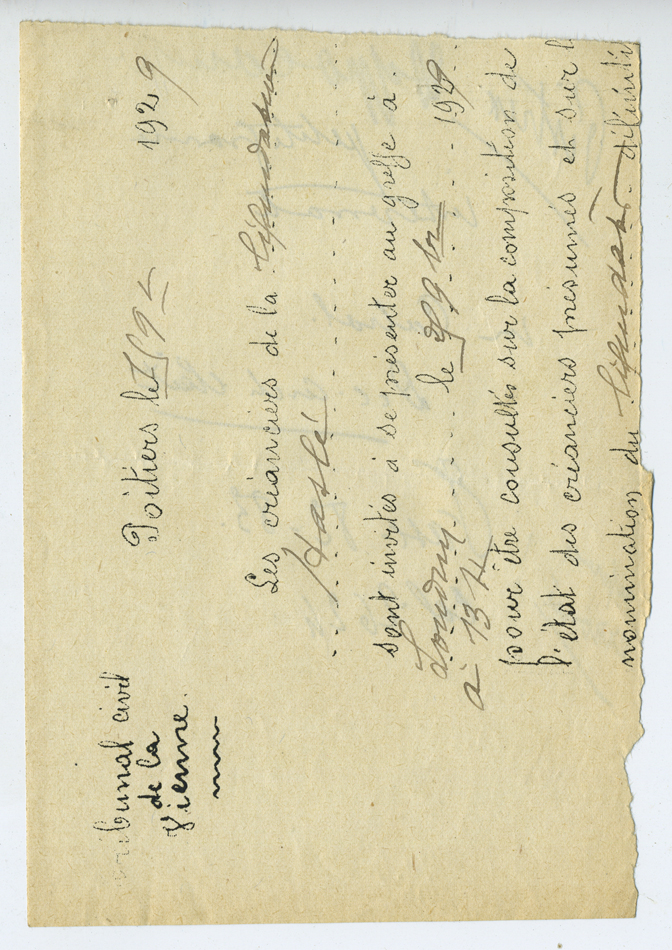 Tribunal civil
de la
Vienne.
Poitiers le 1929
Les créanciers de la liquidation
Haslé
sont invités à se présenter au greffe à
Loudun le 9br 1929
à 13 H
pour être consultés sur la composition de
l'état des créanciers présumés et sur l
nomination du liquidat. définiti